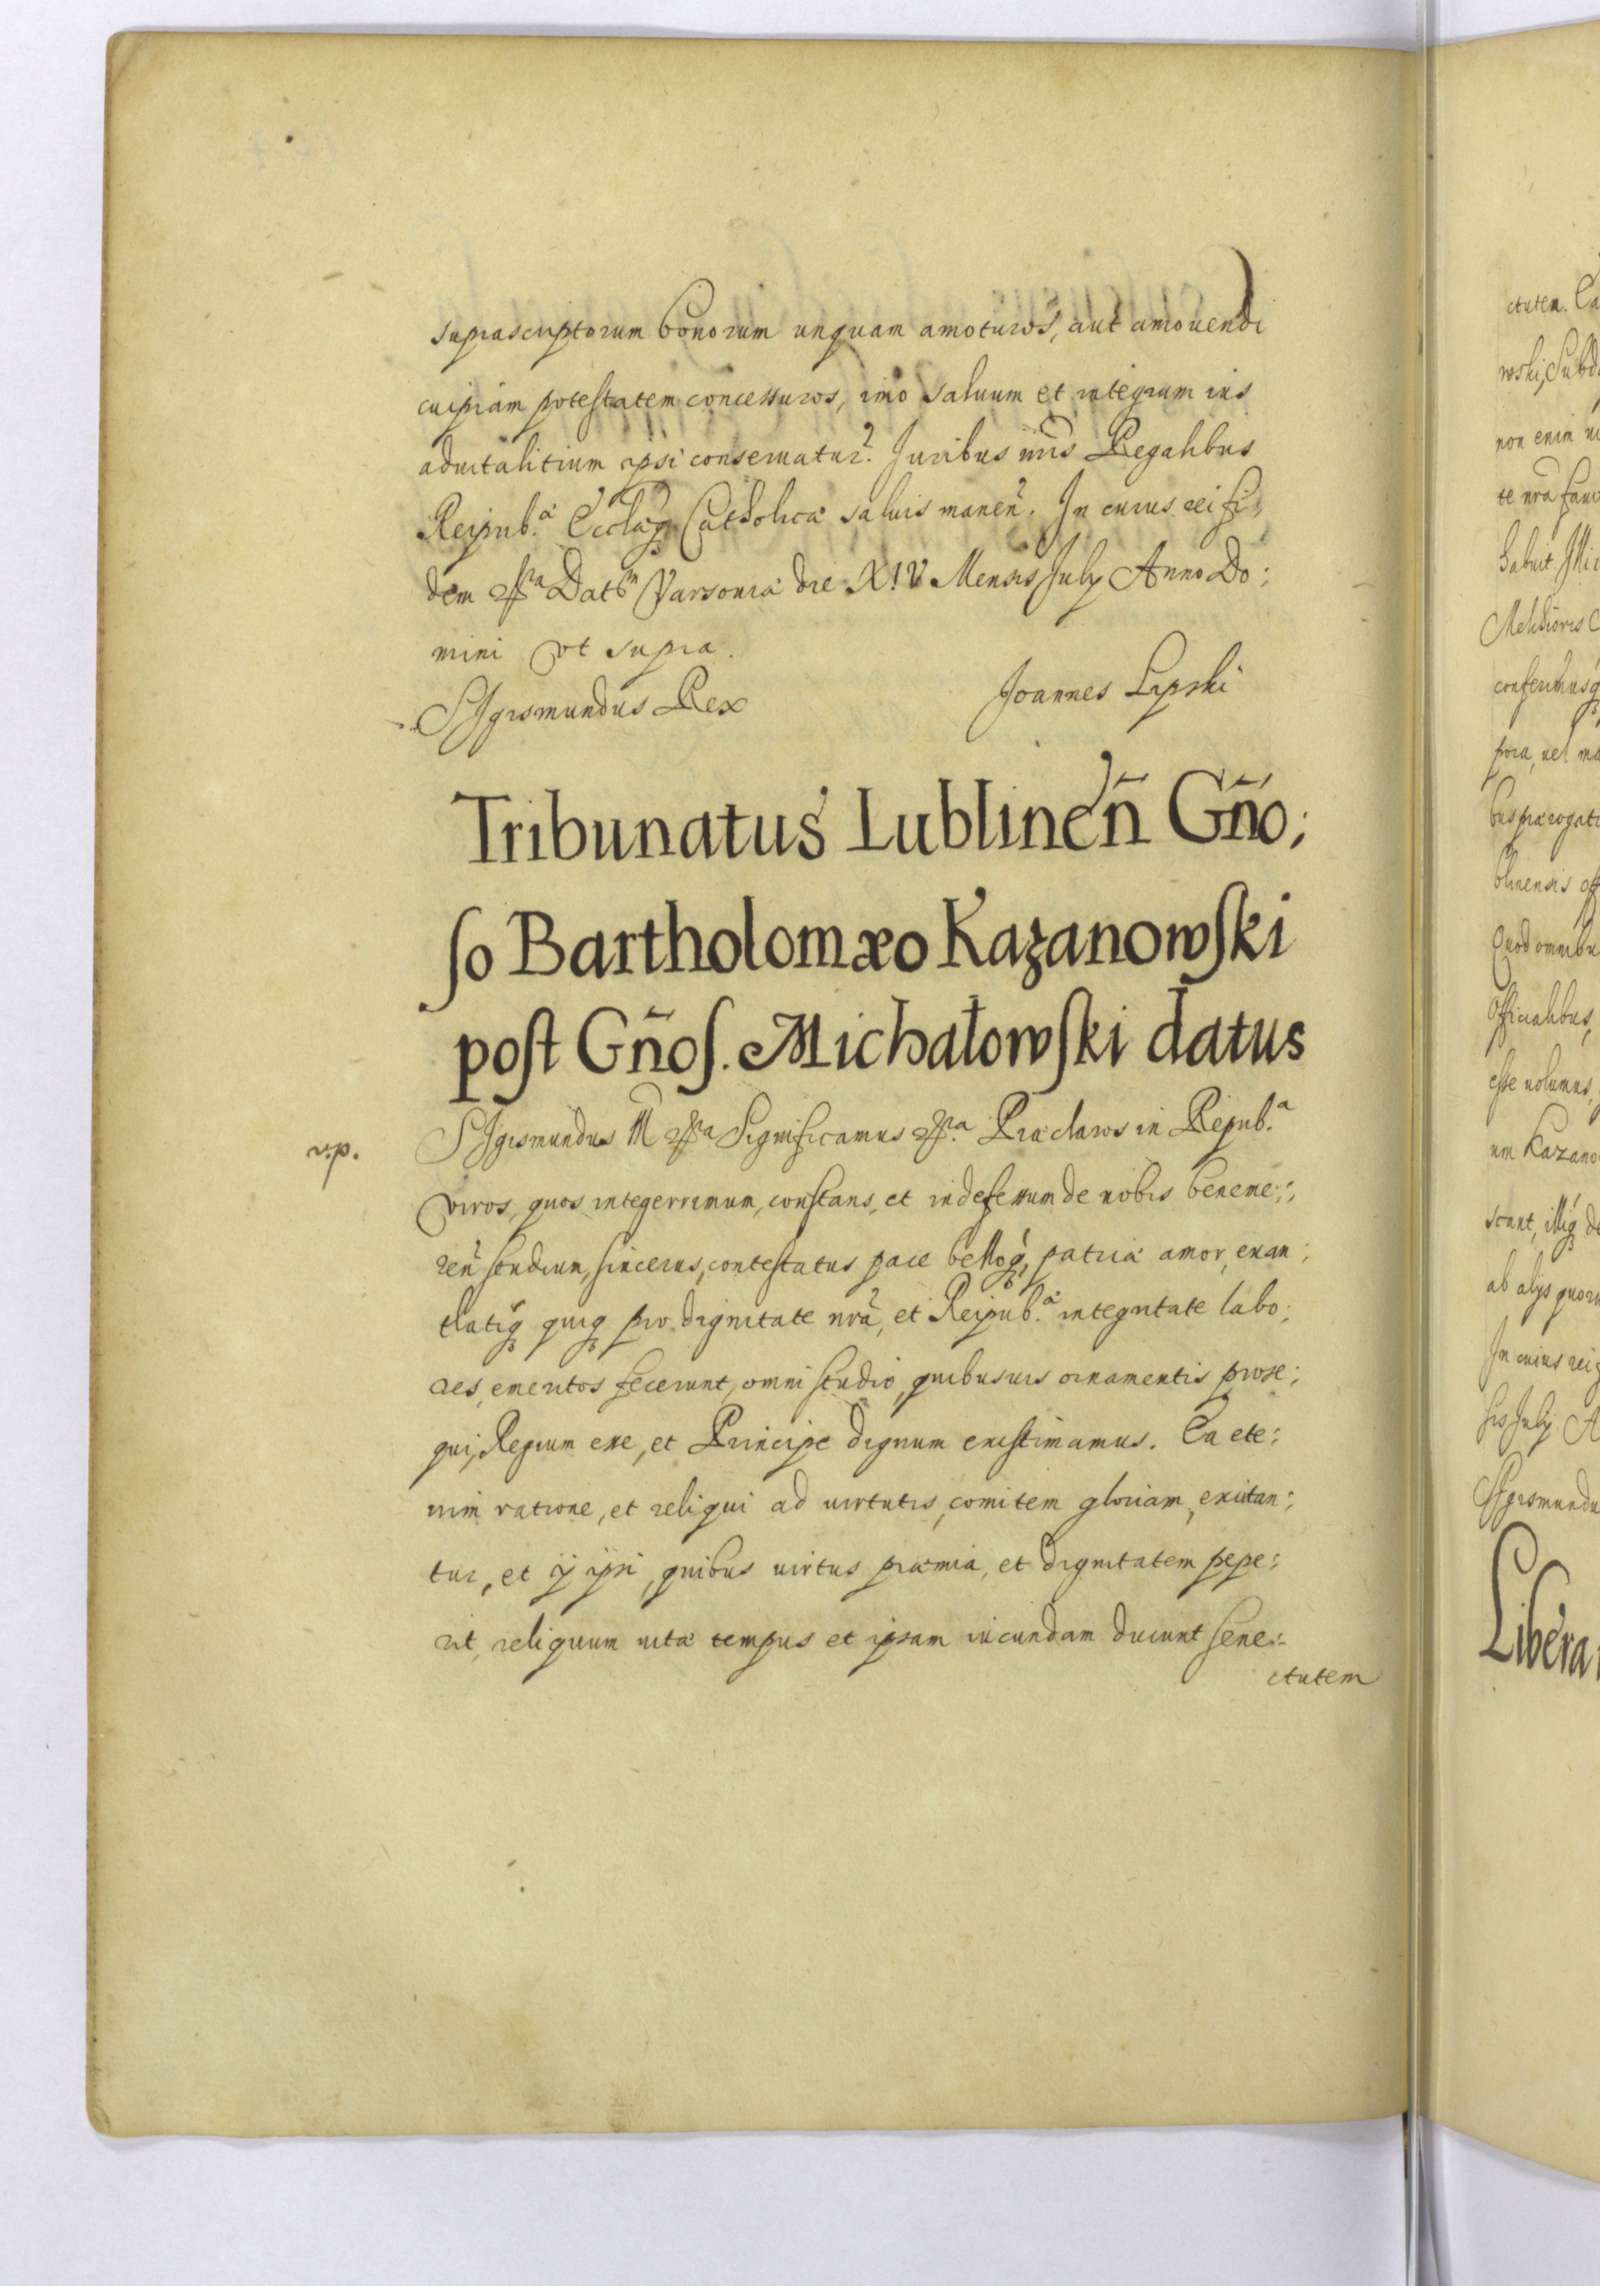 suprascriptorum bonorum unquam amoturos, aut amouendi
cuipiam potestatem concessuros, imo saluum et integrum ius
aduitalitium ipsi conseruatur. Juribus nris Regalibus
Reipub.æ Ecclæq Catholicæ saluis manen. In cuius rei fi„
dem &ra Datm Varsouiæ die XIV Mensis July Anno Do:
mini vt supra.
SIgismundus Rex
Joannes Lipski
Tribunatus Lublinen̄ Gño;
so Bartholomæo Kazanowski
post Gños. Michałowski datus
SIgismundus III &ra Significamus &ra. Præclaros in Repub.a
viros, quos integerrimum, constans, et indefessum de nobis beneme:;
ren̄ studium, sincerus, contestatus pace belloq, patriæ amor, exan:
tlatiq quiq pro dignitate nrã, et Reipub.æ integritate labo:
res, emeritos fecerunt, omni studio, quibusuis ornamentis prose:
qui, Regium esse, et Principe dignum existimamus. Ea ete:
nim ratione, et reliqui ad uirtutis, comitem gloriam, excitan:
tur, et ij ipsi, quibus uirtus præmia, et dignitatem pepe:
rit, reliquum uitæ tempus et ipsam iucundam ducunt sene:
ctutem
ctutem. Ea
wski, Subd
non enim
te nrã fau
habuit
Melioris
conferimusq
pora, uel
bus prærogati
blinensis
Quod omnibu
Officialibus,
esse uolumus,
um Kazano
scant, illiq
ab alijs quoru
In cuius rei
sis July A
SIgismundu
Libera